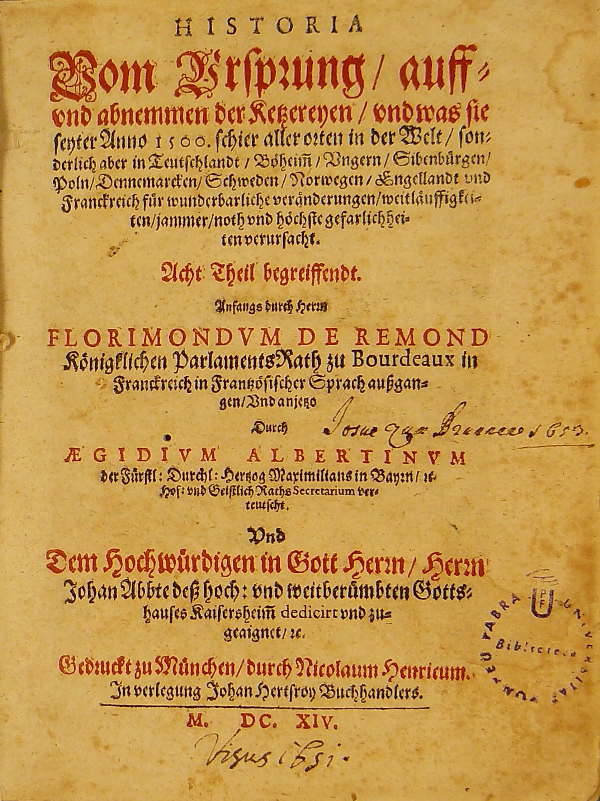 HISTORIA
Vom Vrsprung / auff-
vnd abnemmen der Ketzereyen / vnd was sie
seyter Anno 1500. schier aller orten in der Welt / son-
derlich aber in Teutschlandt / Böheim̃ / Vngern / Sibenbürgen /
Poln / Dennemarcken / Schweden / Norwegen / Engellandt vnd
Franckreich für wunderbarliche veränderungen / weitläuffigkei-
ten / jammer / noth vnd höchste gefarlichhei-
ten verursacht.
Acht Theil begreiffendt.
Anfangs durch Herrn
FLORIMONDVM DE REMOND
Königklichen Parlaments Rath zu Bourdeaux in
Franckreich in Frantzösischer Sprach außgan-
gen / Vnd anjetzo
Durch
ÆGIDIVM ALBERTINVM
der Fürstl: Durchl: Hertzog Maximilians in Bayrn / ꝛc.
Hof: vnd Geistlich Raths Secretarium ver-
teutscht.
Vnd
Dem Hochwürdigen in Gott Herrn / Herrn
Johan Abbte deß hoch: vnd weitberümbten Gotts-
hauses Kaisersheim̃ dedicirt vnd zu-
geaignet / ꝛc.
Gedruckt zu München / durch Nicolaum Henricum.
In verlegung Johan Hertsroy Buchhandlers.
M. DC. XIV.
1653.
1651.
UNIVERSITAS
Biblioteca